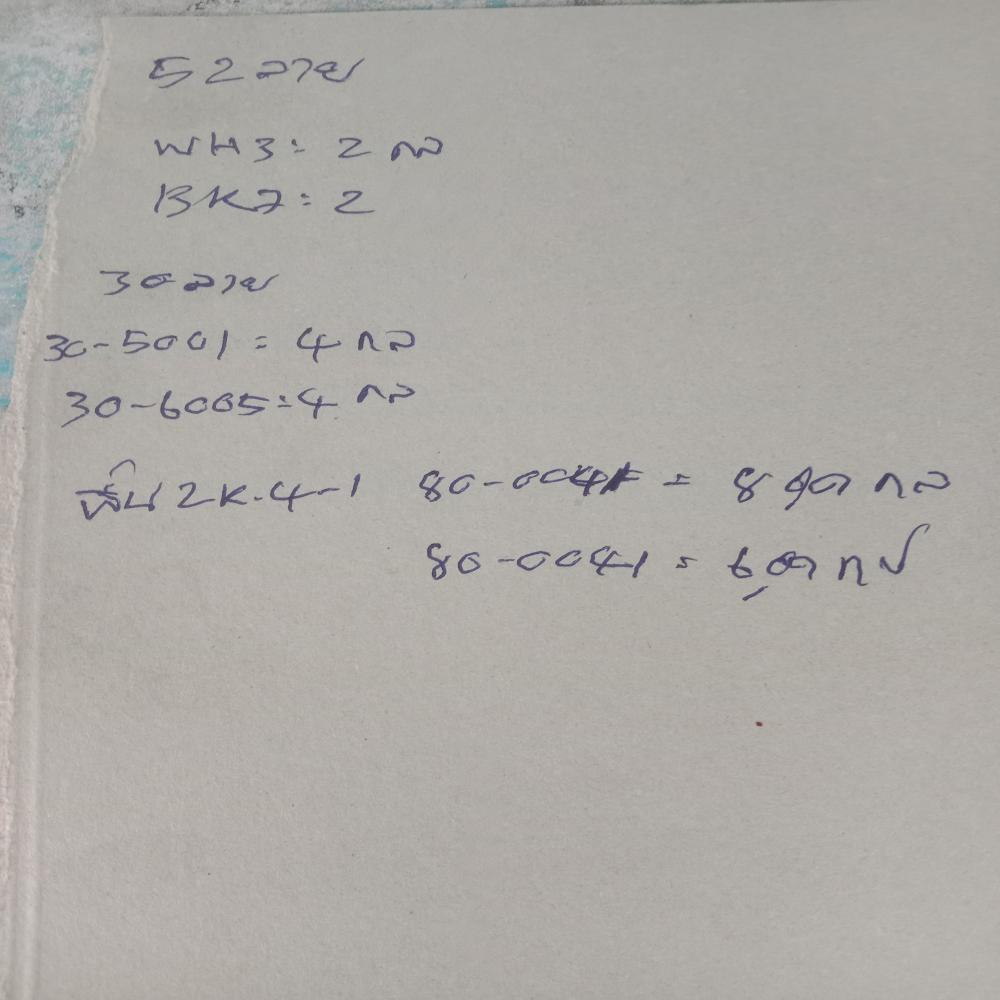 52 ลาย
WH3 = 2 กล
BK7 = 2
30 ลาย
30-5001 = 4 กล
30-6005 = 4 กล
2K.4-1 80-004 = 8 กล
80-0041 = 6